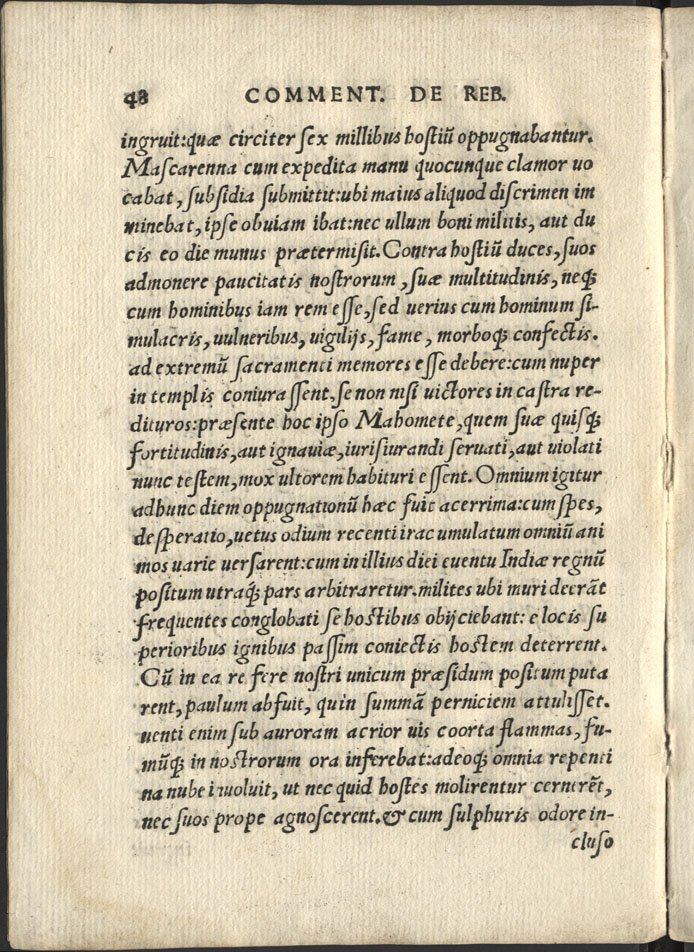 48 COMMENT. DE REB.
ingruit:quæ circiter sex millibus hostiũ oppugnabantur.
Mascarenna cum expedita manu quocunque clamor uo
cabat, subsidia submittit:ubi maius aliquod discrimen im
minebat, ipse obuiam ibat:nec ullum boni militis, aut du
cis eo die munus prætermisit. Contra hostiũ duces, suos
admonere paucitatis nostrorum, suæ multitudinis, neqꝫ
cum hominibus iam rem esse, sed uerius cum hominum si-
mulacris, uulneribus, uigilijs, fame, morboqꝫ confectis.
ad extremũ sacramenti memores esse debere:cum nuper
in templis coniurassent, se non nisi uictores in castra re-
dituros:præsente hoc ipso Mahomete, quem suæ quisqꝫ
fortitudinis, aut ignauiæ, iurisiurandi seruati, aut uiolati
nunc testem, mox ultorem habituri essent. Omnium igitur
adhunc diem oppugnationũ hæc fuit acerrima:cum spes,
desperatio, uetus odium recenti irac umulatum omniũ ani
mos uarie uersarent:cum in illius diei euentu Indiæ regnũ
positum utraqꝫ pars arbitraretur. milites ubi muri deerãt
frequentes conglobati se hostibus obijciebant: e locis su
perioribus ignibus passim coniectis hostem deterrent.
Cũ in ea re fere nostri unicum præsidum positum puta
rent, paulum abfuit, quin summã perniciem attulisset.
uenti enim sub auroram acrior uis coorta flammas, fu-
mũqꝫ in nostrorum ora inferebat:adeoqꝫ omnia repenti
na nube inuoluit, ut nec quid hostes molirentur cernerẽt,
nec suos prope agnoscerent. & cum sulphuris odore in-
cluso